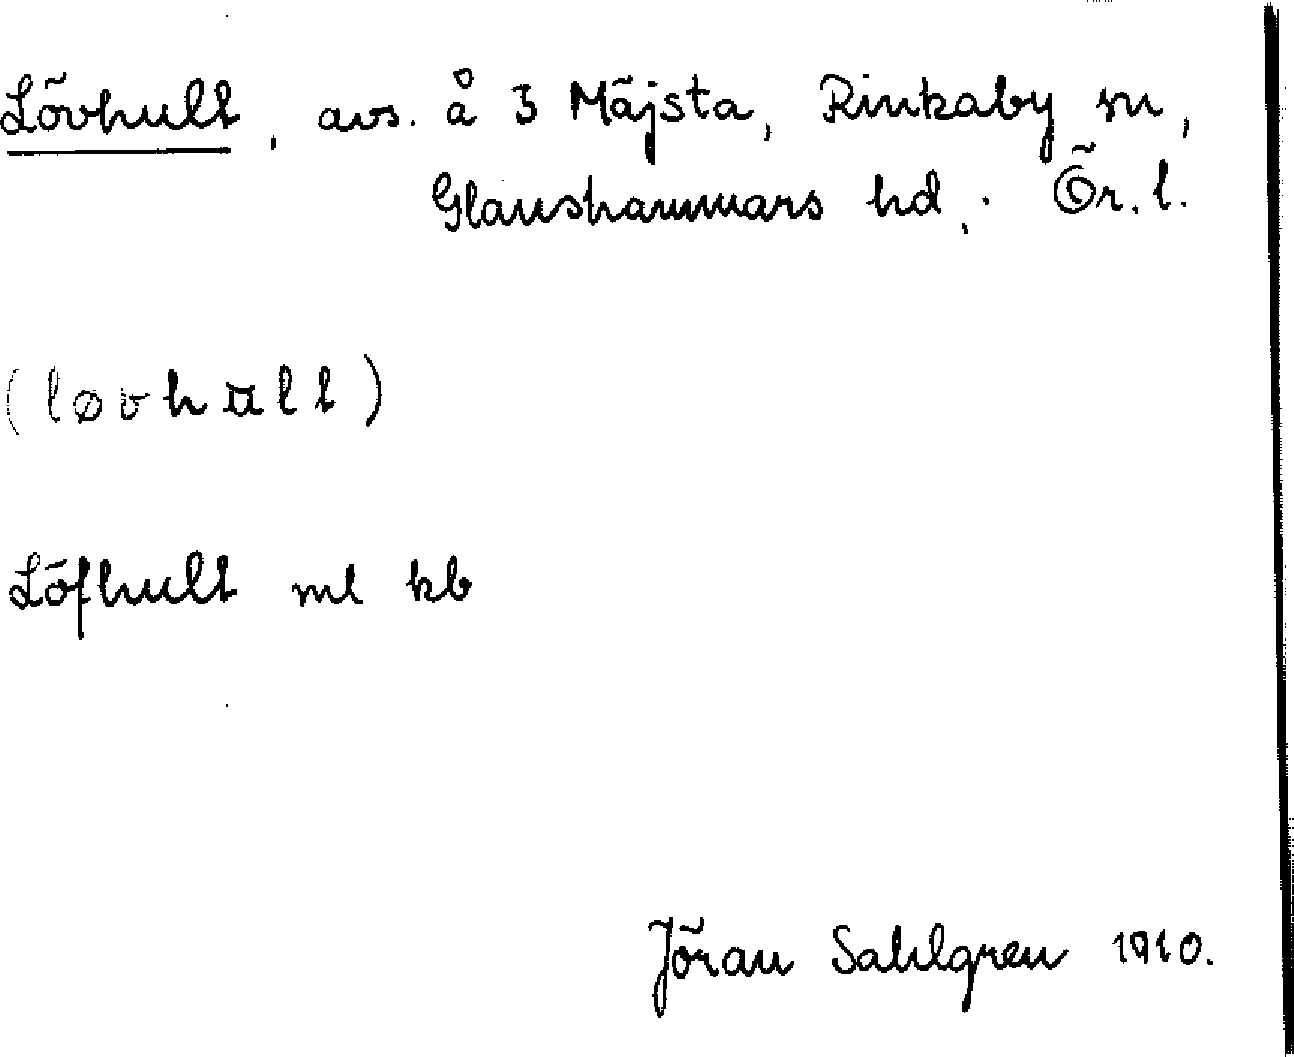 Lövhult, avs. å 3 Mäjsta, Rinkaby sn,
Glanshammars hd, Ör. l.
(løvhull)
Löfhult ml kb
Jöran Sahlgren 1910.